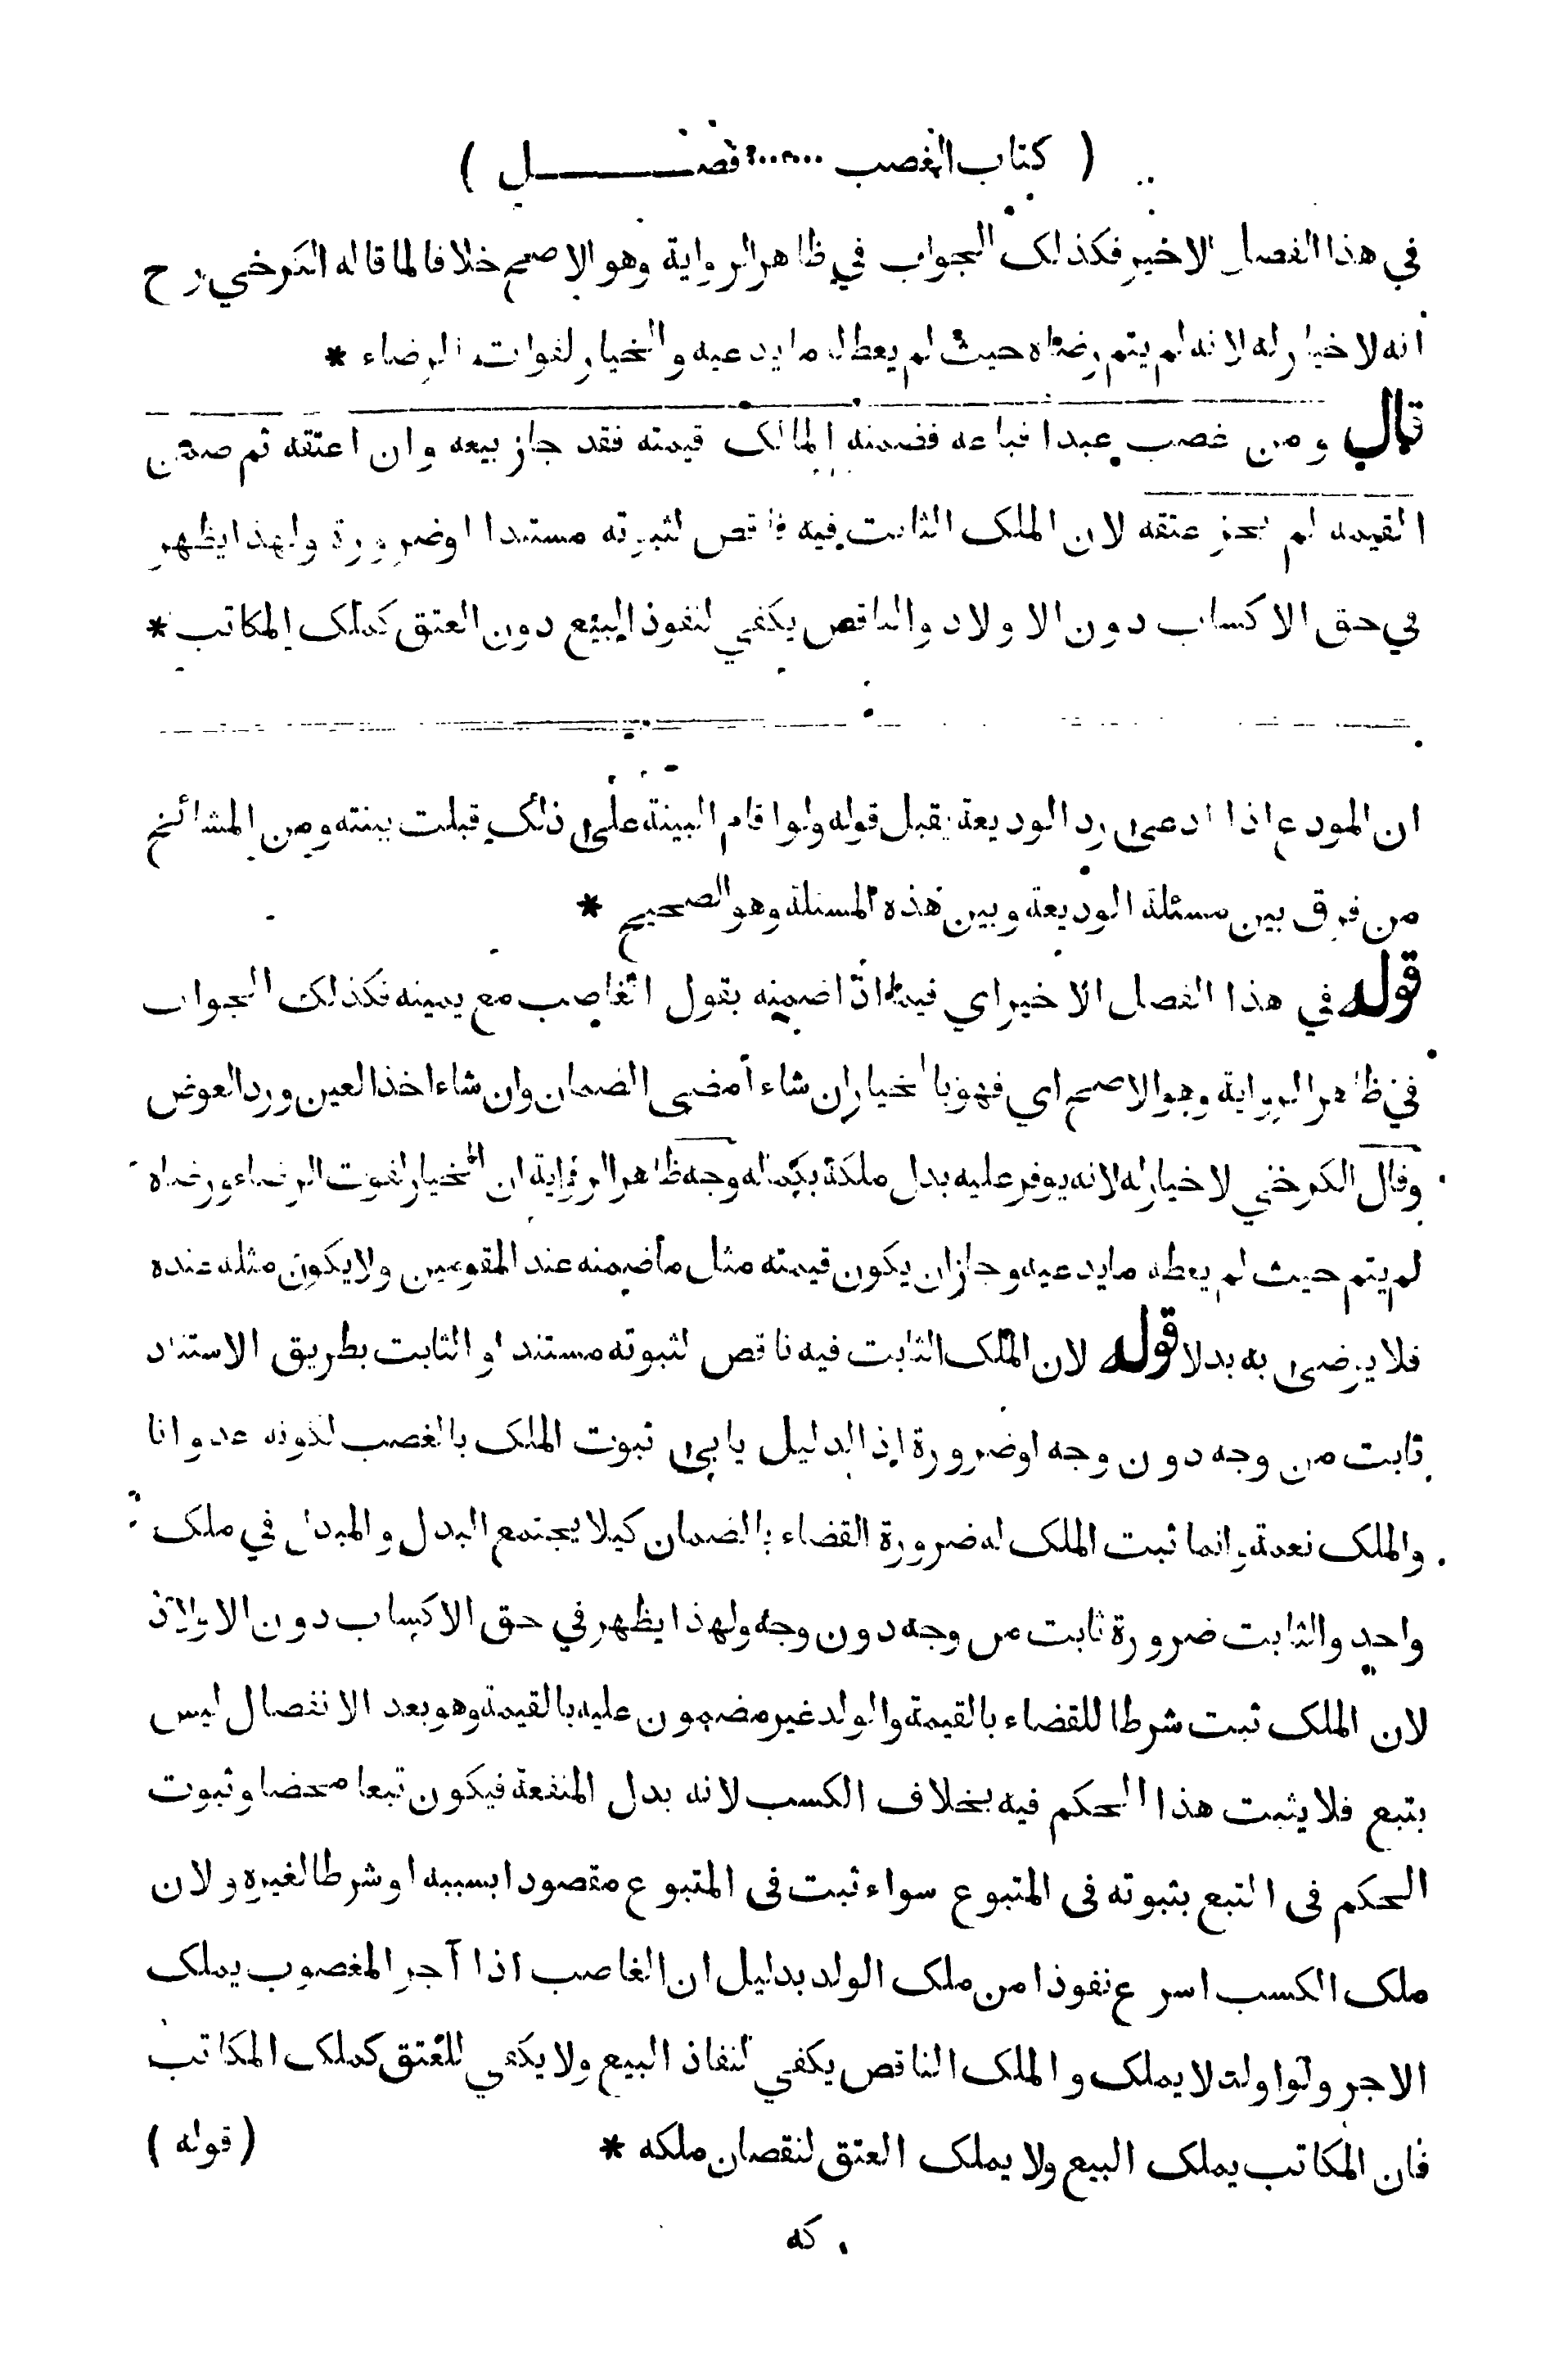 ( كتاب الغصب ...... فصل )
في هذا الفصل الاخير فكذلك الجواب في ظاهر الرواية وهو الاصح خلافا لما قاله الكرخي رح
انه لا خيار له لانه لم يتم رضاه حيث لم يعط له ما يدعيه والخيار لفوات الرضاء *
قال ومن غصب عبدا فباعه فضمنه المالك قيمته فقد جاز بيعه وان اعتقه ثم ضمن
القيمه لم يجز عتقه لان الملك الثابت فيه ناقص لثبوته مستندا اوضرورة ولهذا يظهر
في حق الاكساب دون الاولاد والناقص يكفي لنفوذ البيع دون العتق كملك المكاتب *
ان المودع اذا ادعى رد الوديعة يقبل قوله ولو اقام البينة على ذلك قبلت بينته ومن المشائخ
من فرق بين مسئلة الوديعة وبين هذه المسئلة وهو الصحيح *
قوله في هذا الفصل الاخير اي فيما اذا ضمنه بقول الغاصب مع يمينه فكذلك الجواب
في ظاهر الرواية وهو الاصح اي فهو بالخيار ان شاء امضى الضمان وان شاء اخذ العين ورد العوض
وقال الكرخي لا خيار له لانه يوفر عليه بدل ملكه بكماله وجه ظاهر الرواية ان الخيار لفوت الرضاء ورضاه
لم يتم حيث لم يعطه ما يدعيه وجاز ان يكون قيمته مثل ما ضمنه عند المقومين ولا يكون مثله عنده
فلا يرضى به بدلا قوله لان الملك الثابت فيه ناقص لثبوته مستندا و الثابت بطريق الاستناد
ثابت من وجه دون وجه اوضرورة اذ الدليل يابى ثبوت الملك بالغصب لكونه عدوانا
والملك نعمة وانما ثبت الملك له ضرورة القضاء بالضمان كيلا يجتمع البدل والمبدل في ملك
واحد والثابت ضرورة ثابت من وجه دون وجه ولهذا يظهر في حق الاكساب دون الاولاد
لان الملك ثبت شرطا للقضاء بالقيمة والولد غير مضمون عليه بالقيمة وهو بعد الانفصال ليس
بتبع فلا يثبت هذا الحكم فيه بخلاف الكسب لانه بدل المنفعة فيكون تبعا محضا وثبوت
الحكم فى التبع بثبوته فى المتبوع سواء ثبت فى المتبوع مقصودا بسببه او شرطا لغيره ولان
ملك الكسب اسرع نفوذا من ملك الولد بدليل ان الغاصب اذا آجر المغصوب يملك
الاجر ولو اولد لا يملك والملك الناقص يكفي لنفاذ البيع ولا يكفي للعتق كملك المكاتب
فان المكاتب يملك البيع ولا يملك العتق لنقصان ملكه * ( قوله )
كه